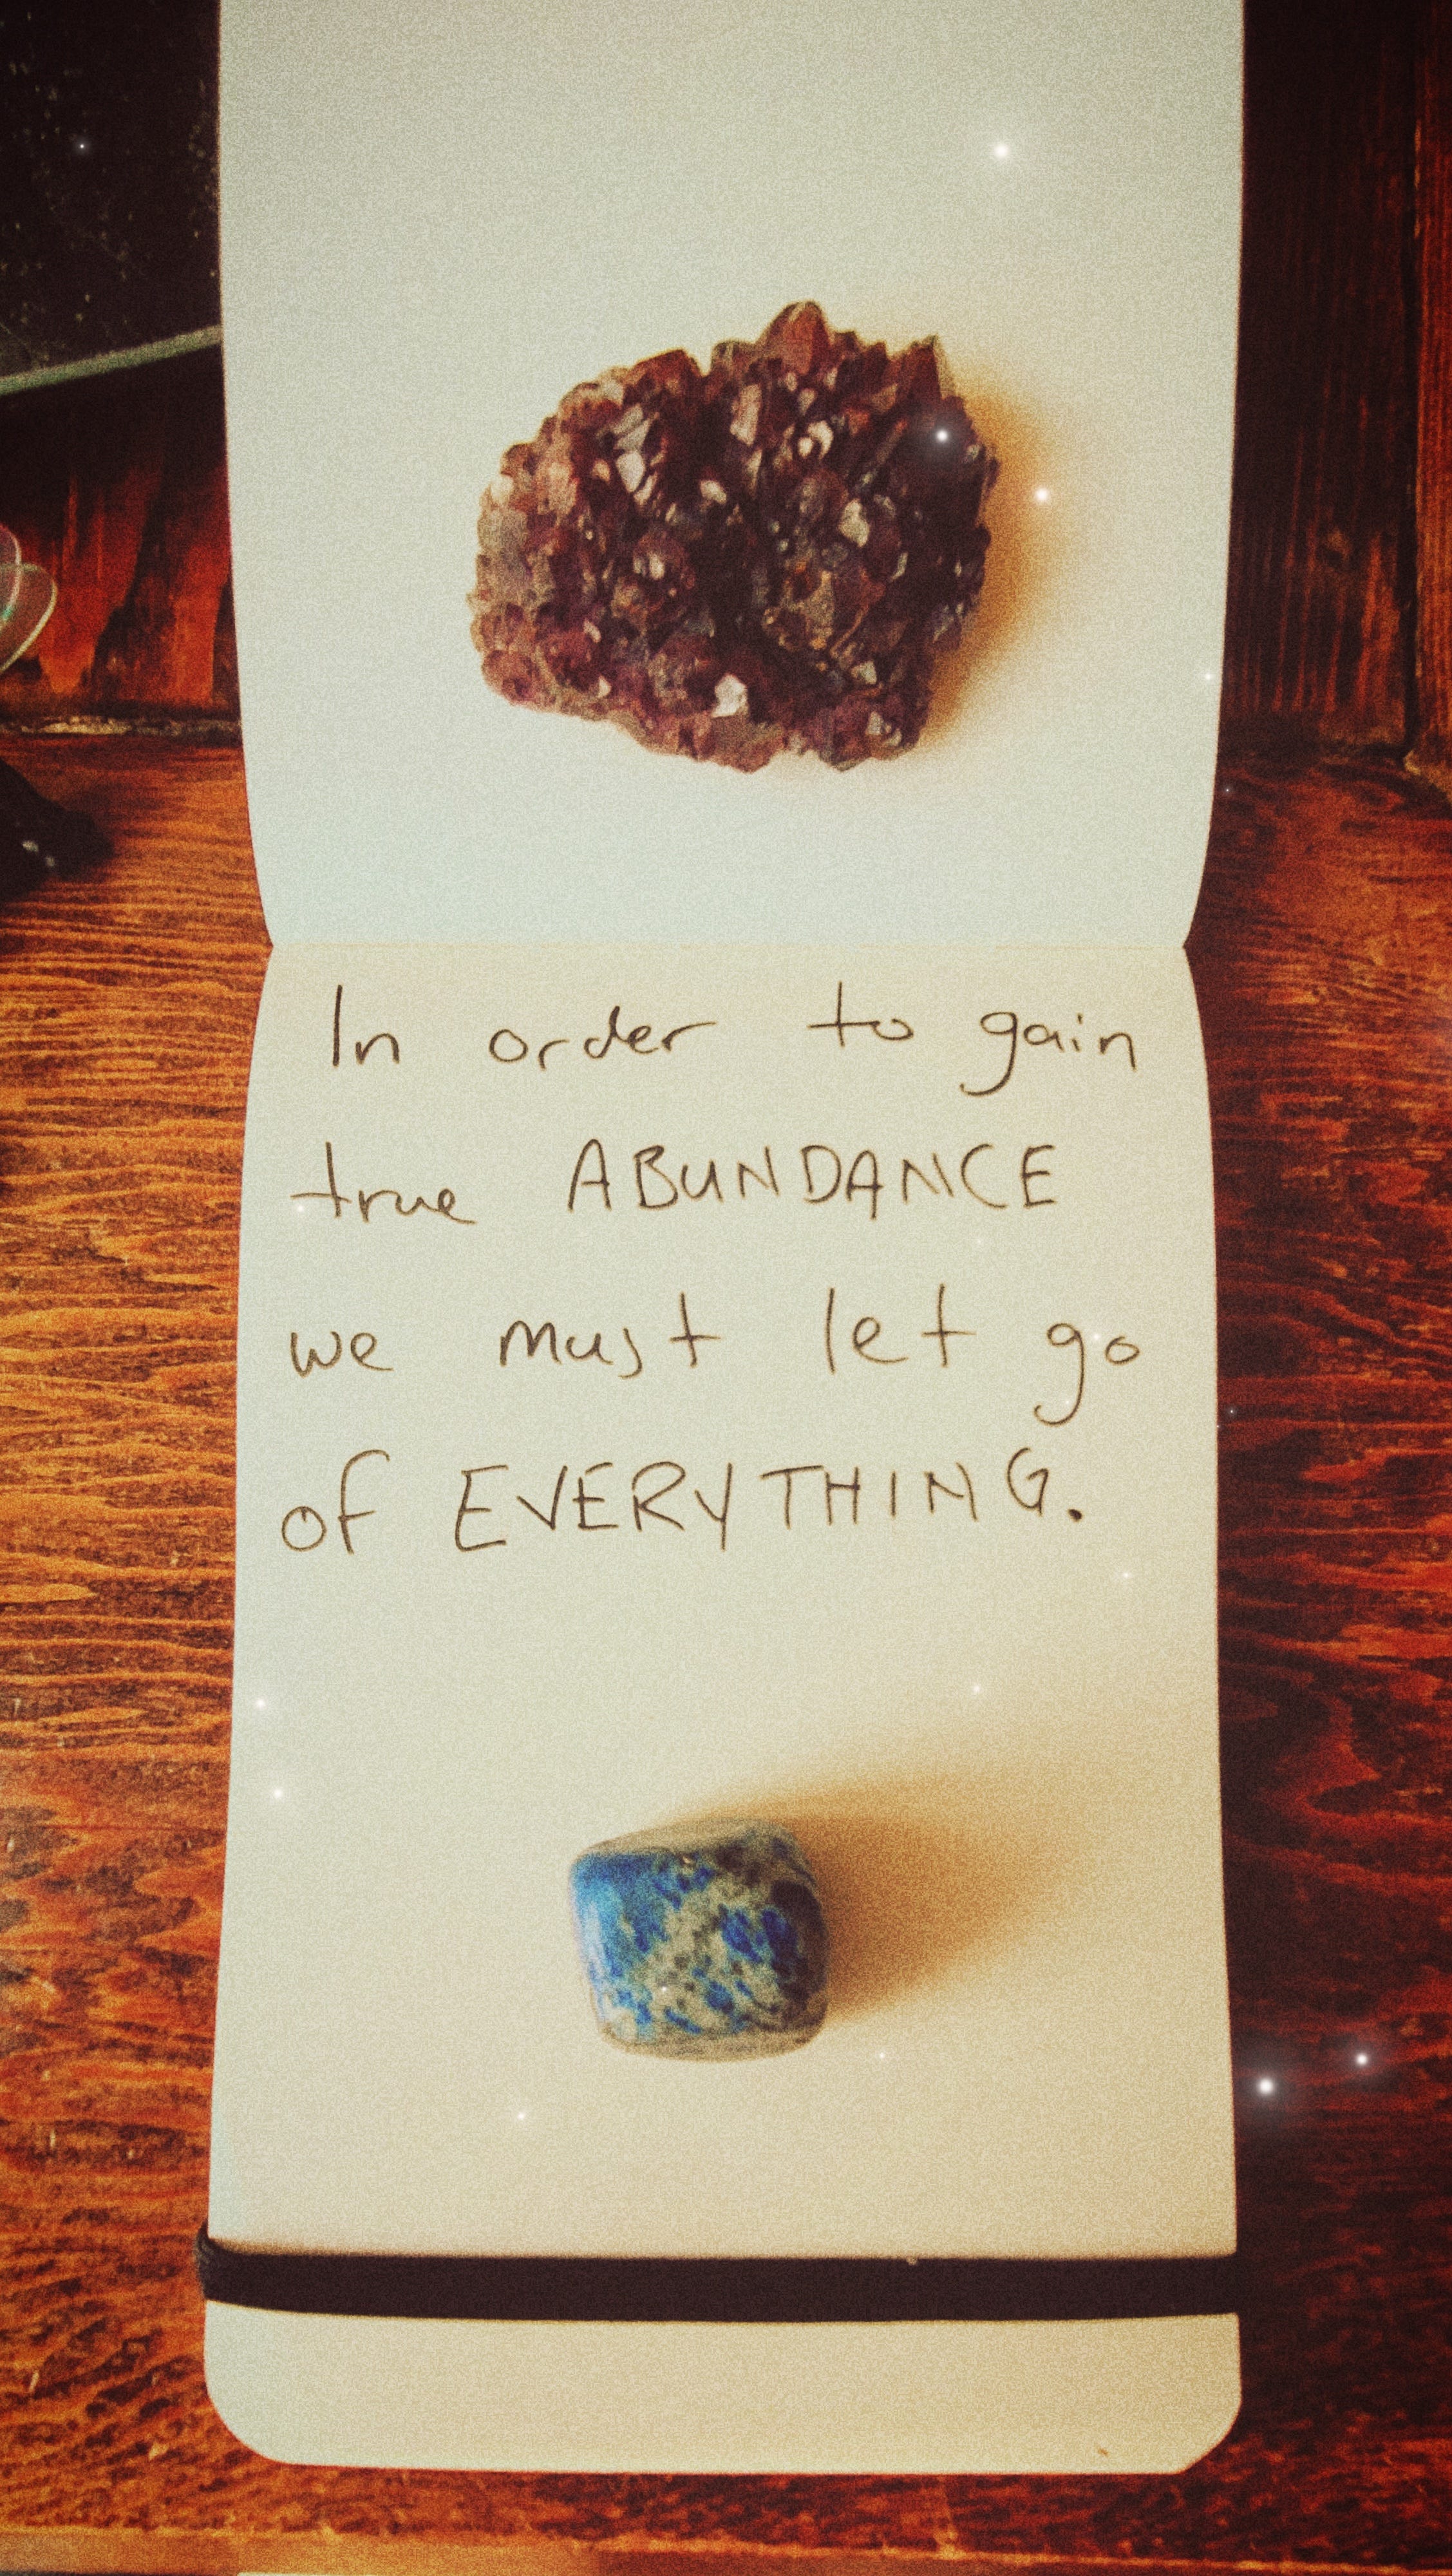 In order to gain
true ABUNDANCE
we must let go
of EVERYTHING.